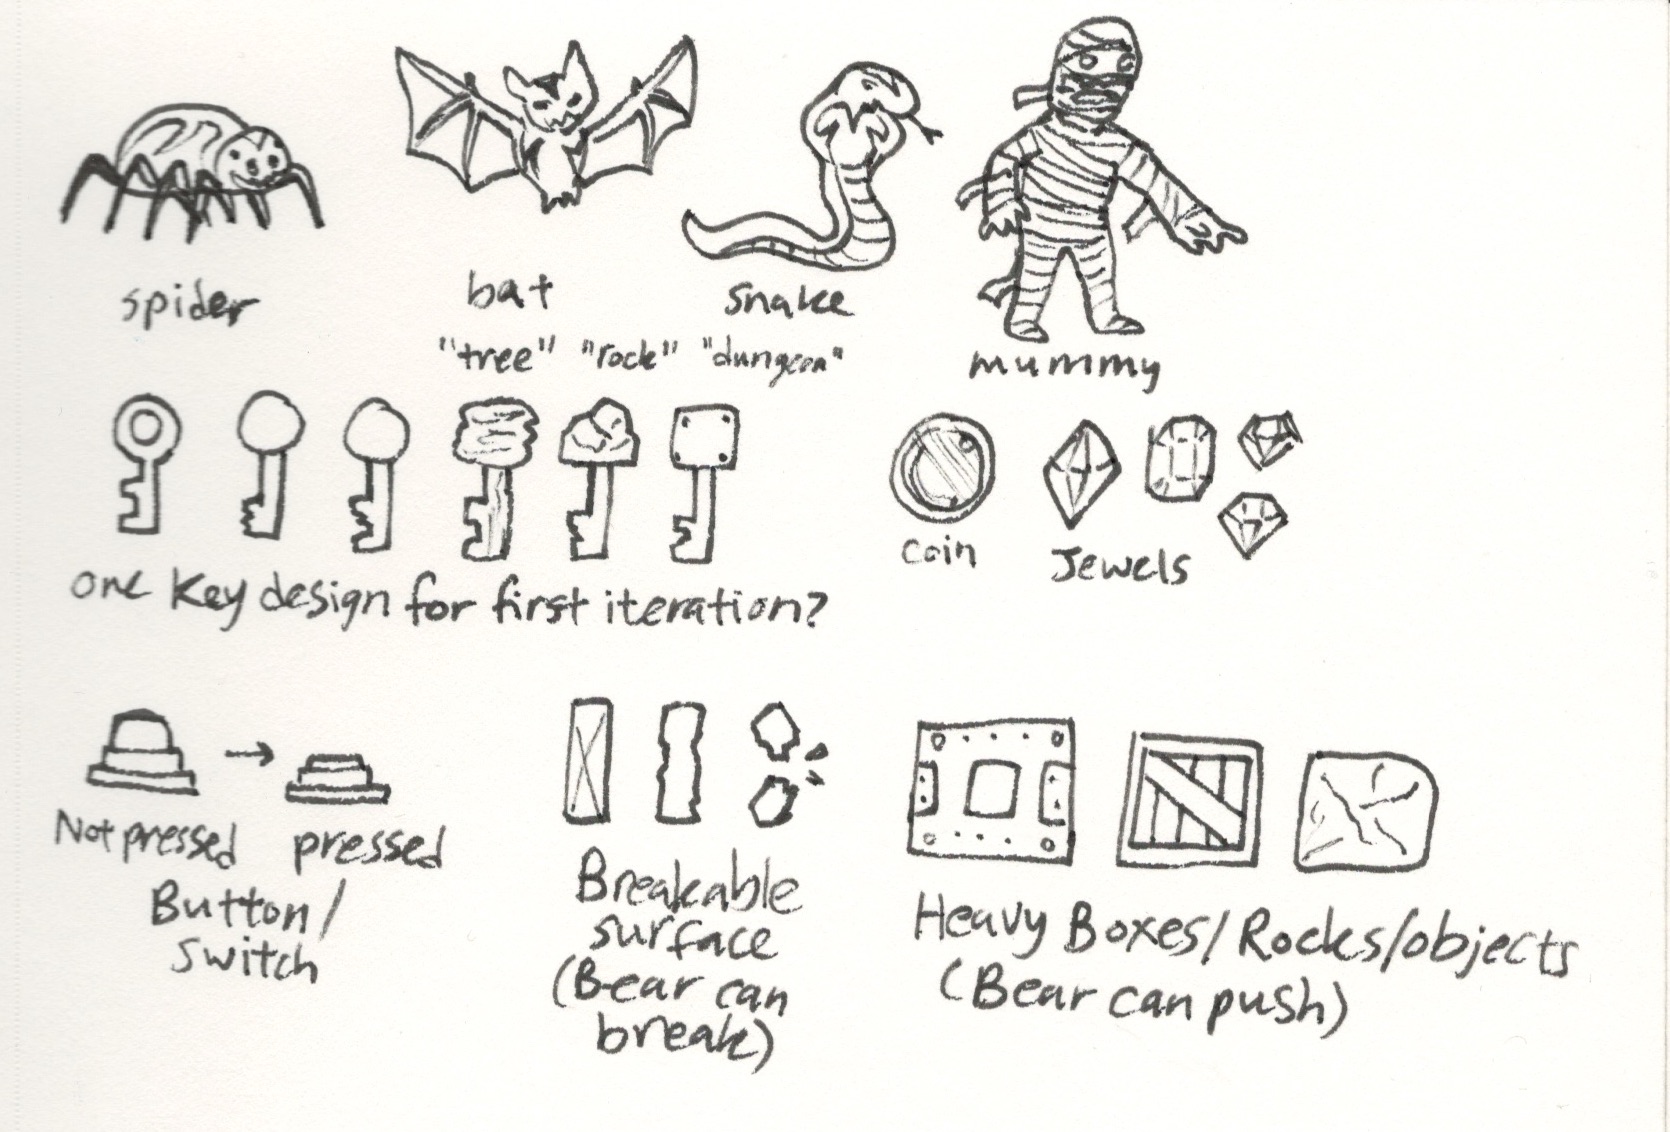 spider
bat
snake
mummy
"tree" "rock" "dungeon"
coin
Jewels
one key design for first iteration?
Not pressed
pressed
Button/
switch
Breakable
surface
(Bear can
break)
Heavy Boxes/Rocks/objects
(Bear can push)